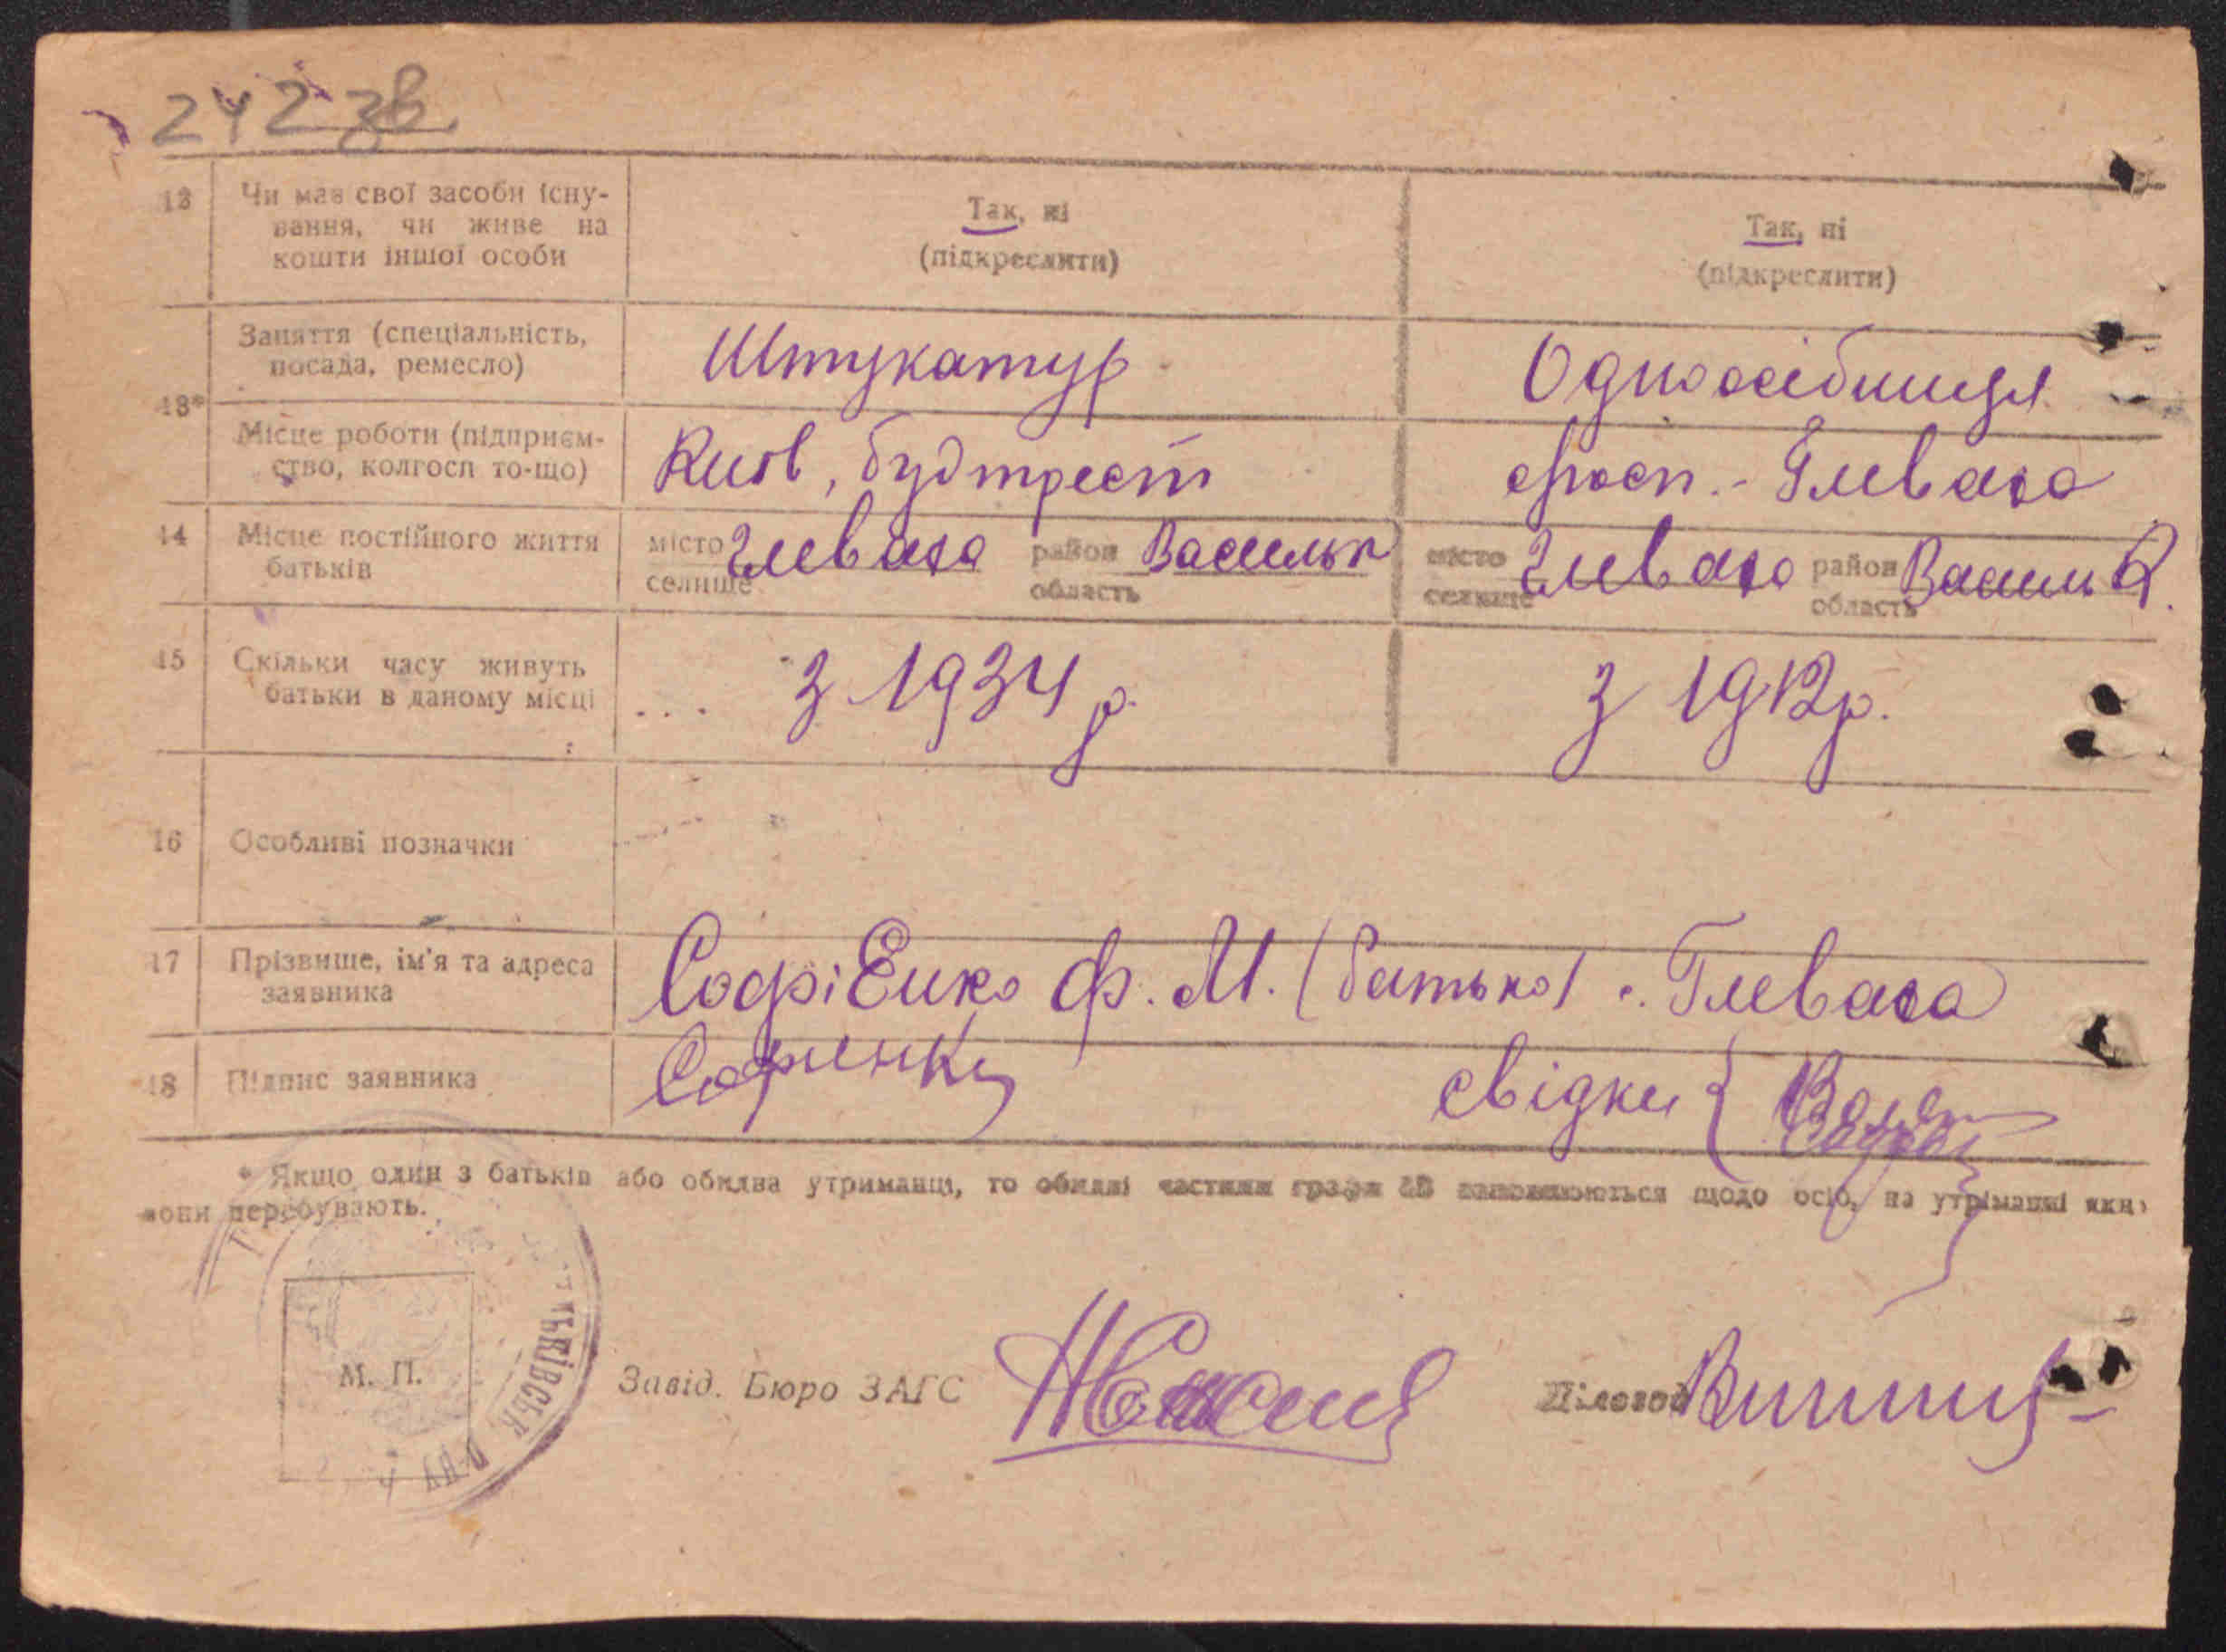 242 зв.
12 Чи має свої засоби існу-
вання, чи живе на
кошти іншої особи
Так, ні
(підкреслити)
Так, ні
(підкреслити)
13*
Заняття (спеціальність,
посада, ремесло)
Штукатур
Одноосібниця
Місце роботи (підприєм-
ство, колгосп то-що)
Київ, будтрест
Глеваха
14 Місце постійного життя
батьків
місто
селище
Глеваха
район
область
Васильк
місто
селище
Глеваха
район
область
Васильк.
15 Скільки часу живуть
батьки в даному місці
... з 1934 р.
з 1912 р.
16 Особливі позначки
17 Прізвище, ім'я та адреса
заявника
Софієнко Ф. М. (батько) с. Глеваха
18 Підпис заявника
Софиенко
свідки {
* Якщо один з батьків або обидва утриманці, то обидві частини графи 13 заповнюються щодо осіб, на утриманні яких
вони перебувають.
М. П.
ТЬКІВСЬК. Р-НУ
Завід. Бюро ЗАГС
Діловод